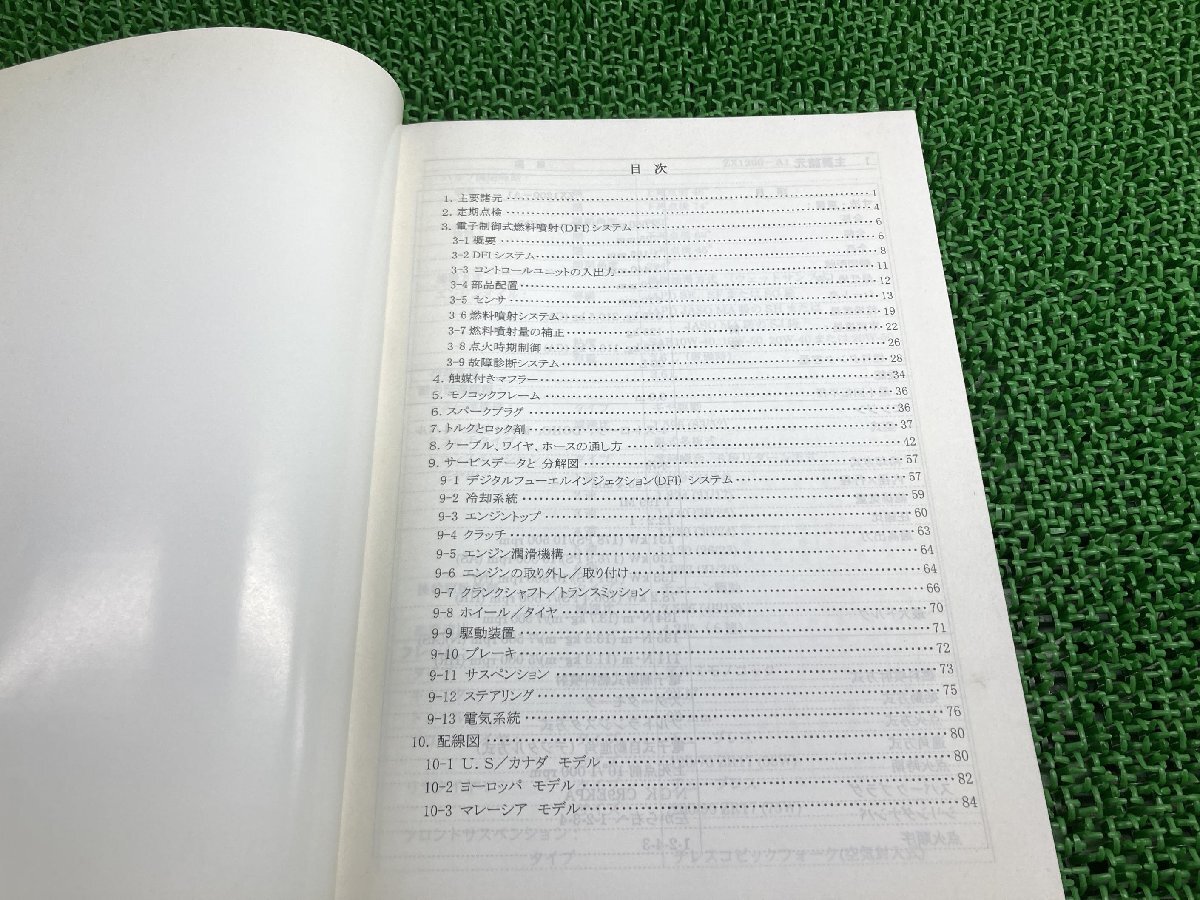 目次
1. 主要諸元 1
2. 定期点検 4
3. 電子制御式燃料噴射(DFI)システム 6
3-1 概要 6
3-2 DFIシステム 8
3-3 コントロールユニットの入出力 11
3-4 部品配置 12
3-5 センサ 13
3-6 燃料噴射システム 19
3-7 燃料噴射量の補正 22
3-8 点火時期制御 26
3-9 故障診断システム 28
4. 触媒付きマフラー 34
5. モノコックフレーム 36
6. スパークプラグ 36
7. トルクとロック剤 37
8. ケーブル、ワイヤ、ホースの通し方 42
9. サービスデータと 分解図 57
9-1 デジタルフューエルインジェクション(DFI) システム 57
9-2 冷却系統 59
9-3 エンジントップ 60
9-4 クラッチ 63
9-5 エンジン潤滑機構 64
9-6 エンジンの取り外し/取り付け 64
9-7 クランクシャフト/トランスミッション 66
9-8 ホイール/タイヤ 70
9-9 駆動装置 71
9-10 ブレーキ 72
9-11 サスペンション 73
9-12 ステアリング 75
9-13 電気系統 76
10. 配線図 80
10-1 U.S/カナダ モデル 80
10-2 ヨーロッパ モデル 82
10-3 マレーシア モデル 84